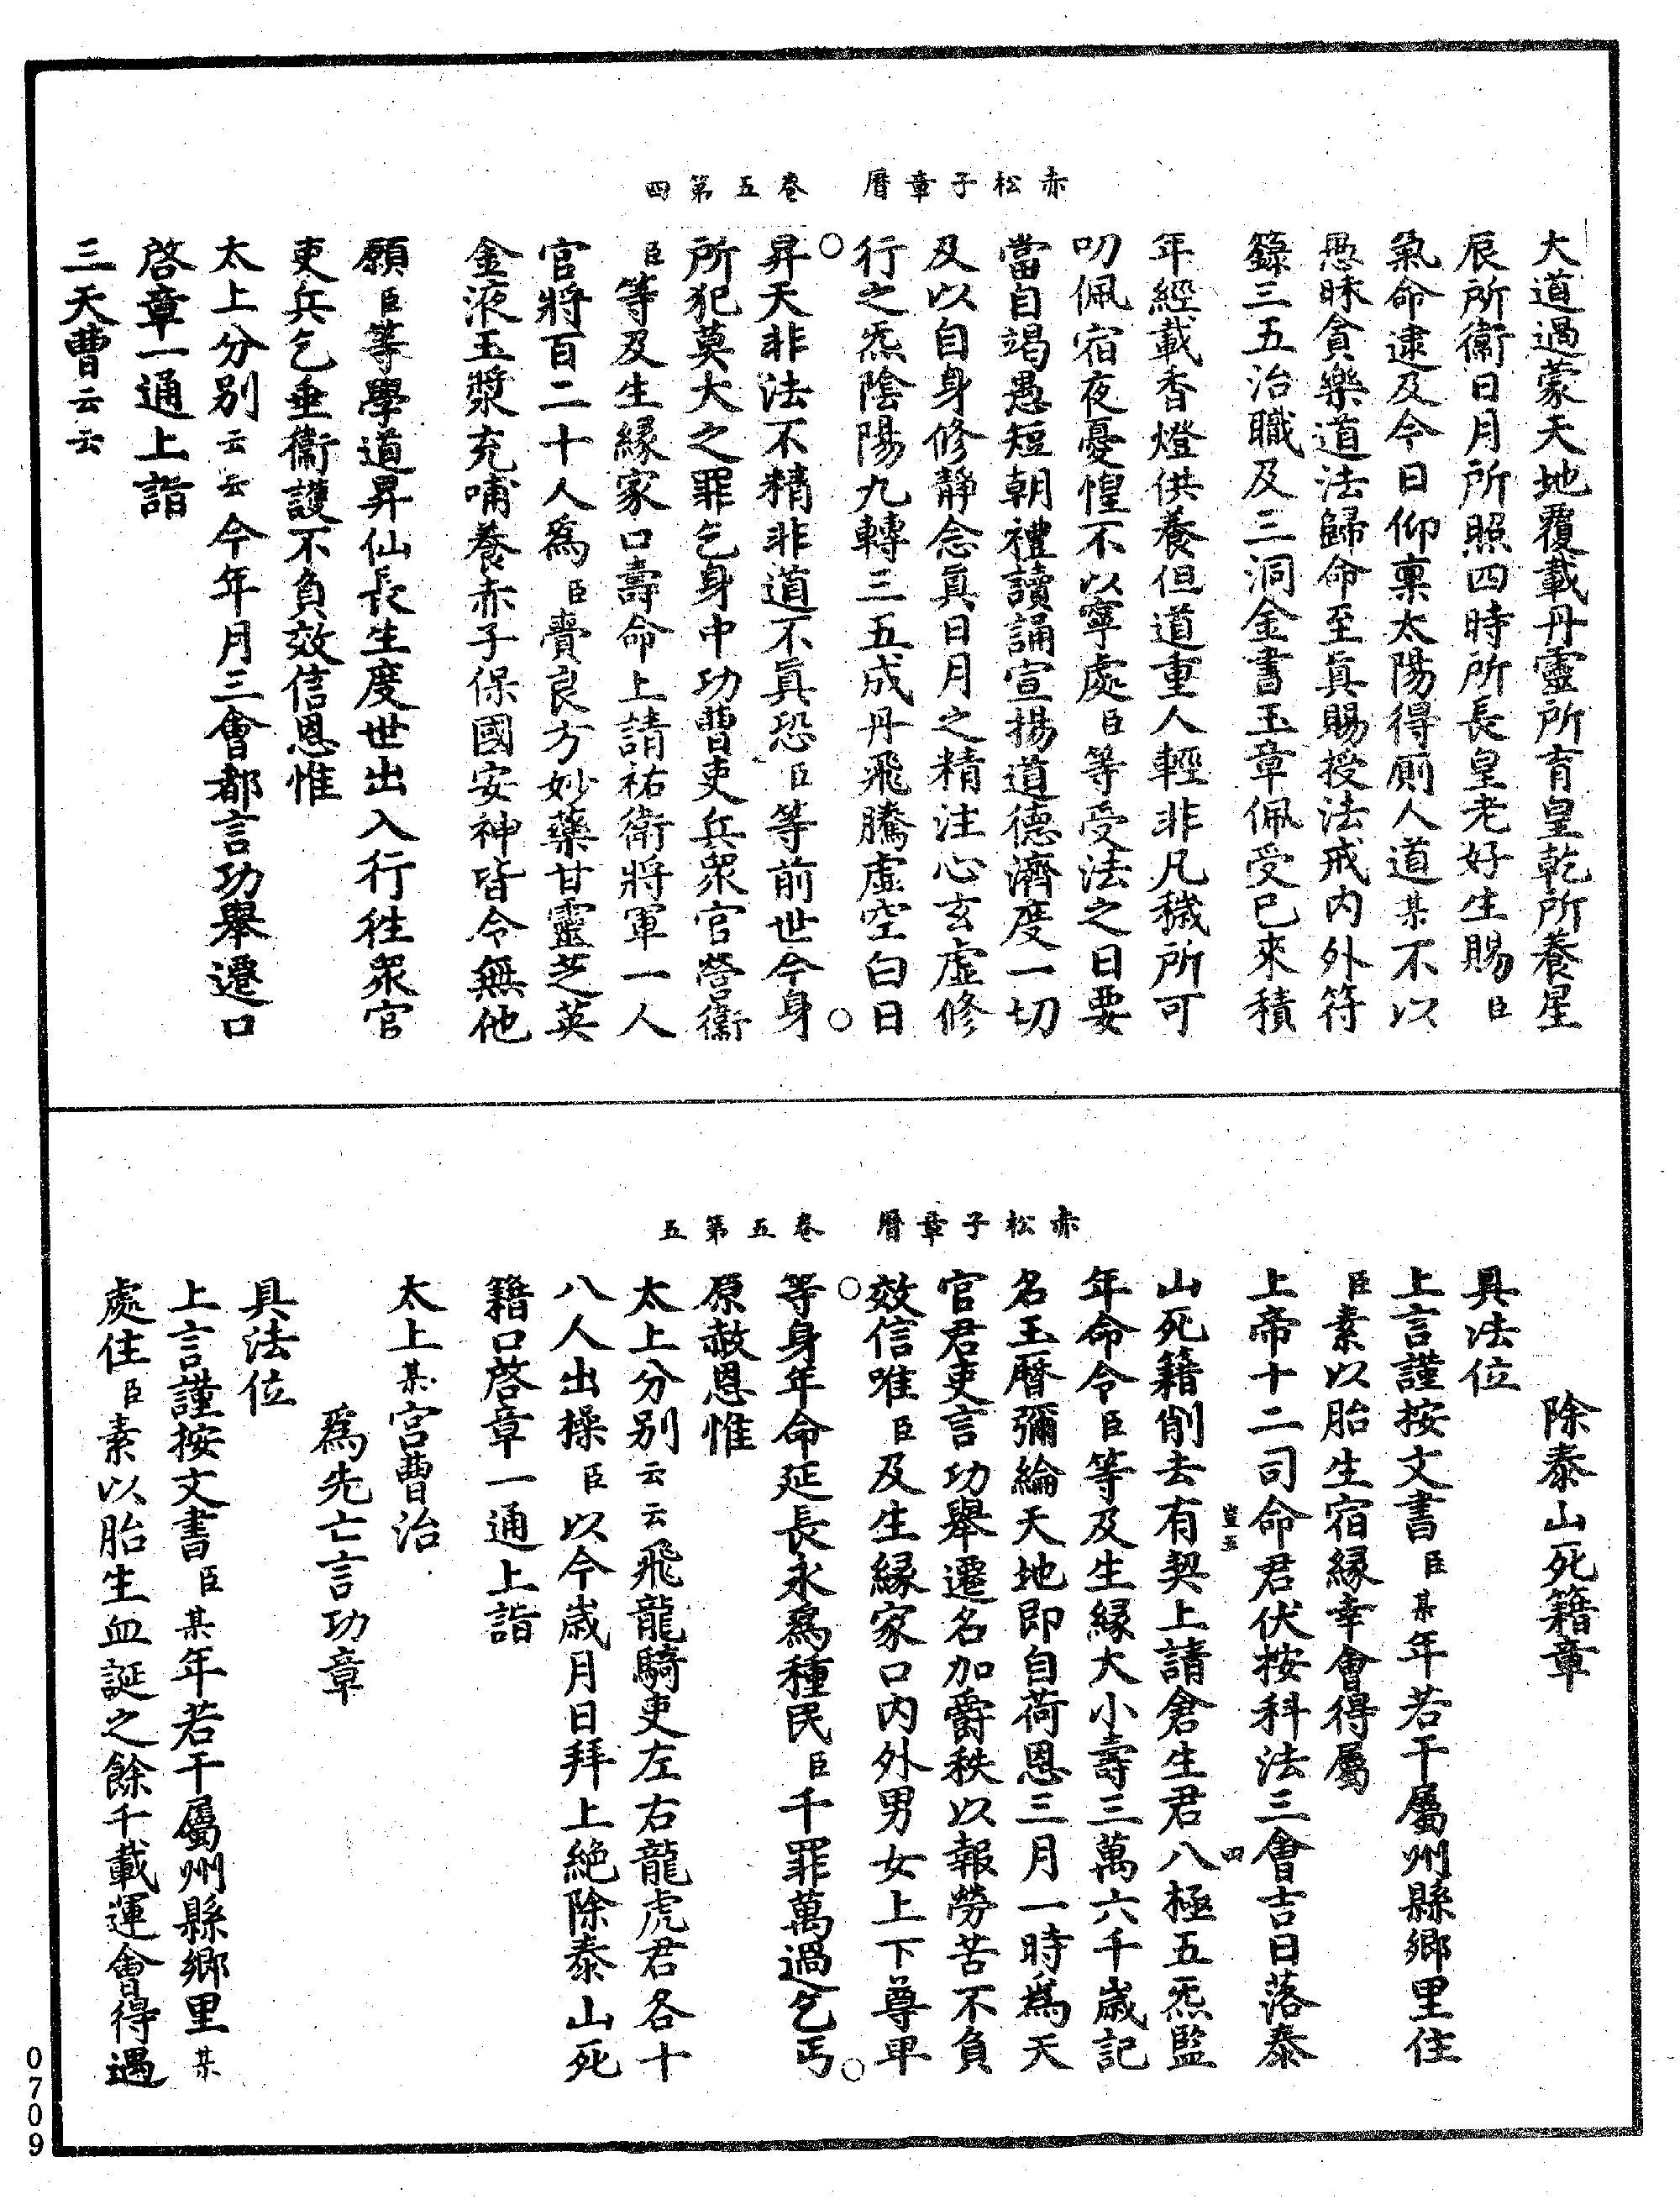 赤松子章曆　卷五第四
大道過蒙天地覆載丹靈所育皇乾所養星
辰所衛日月所照四時所長皇老好生賜臣
氣命逮及今日仰稟太陽得廁人道某不以
愚昧貪樂道法歸命至眞賜授法戒内外符
籙三五治職及三洞金書玉章佩受已來積
年經載香燈供養但道重人輕非凡穢所可
叨佩宿夜憂惶不以寧處臣等受法之日要
當自竭愚短朝禮讀誦宣揚道德濟度一切
及以自身修靜念眞日月之精注心玄虛修
行之炁陰陽九轉三五成丹飛騰虛空白日
昇天非法不精非道不眞恐臣等前世今身
所犯莫大之罪乞身中功曹吏兵衆官營衛
臣等及生緣家口壽命上請祐衛將軍一人
官將百二十人爲臣賫良方妙藥甘靈芝英
金液玉漿充哺養赤子保國安神皆令無他
願臣等學道昇仙長生度世出入行徃衆官
吏兵乞垂衛護不負效信恩惟
太上分别云云今年月三會都言功舉遷口
啓章一通上詣
三天曹云云
赤松子章曆　卷五第五
除泰山死籍章
具法位
上言謹按文書臣某年若干屬州縣鄉里住
臣素以胎生宿緣幸會得屬
上帝十二司命君伏按科法三會吉日落泰
山死籍削去有契上請倉生君八極五炁監
年命令臣等及生緣大小壽三萬六千歲記
名玉曆彌綸天地即自荷恩三月一時爲天
官君吏言功舉遷名加爵秩以報勞苦不負
效信唯臣及生緣家口内外男女上下尊卑
等身年命延長永爲種民臣千罪萬過乞丐
原赦恩惟
太上分别云云飛龍騎吏左右龍虎君各十
八人出操臣以今歲月日拜上絶除泰山死
籍口啓章一通上詣
太上某宮曹治
爲先亡言功章
具法位
上言謹按文書臣某年若干屬州縣鄉里某
處住臣素以胎生血誕之餘千載運會得遇
0709